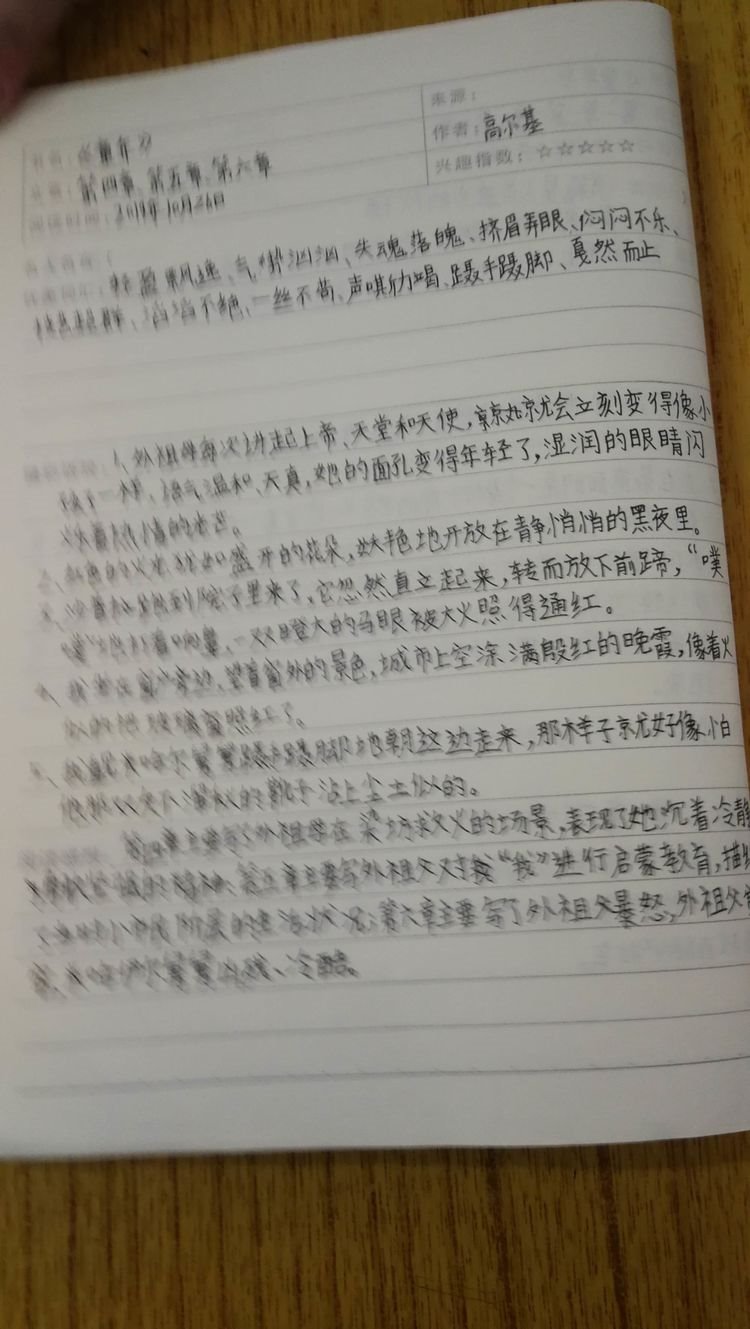 来源：
书名：《童年》
作者：高尔基
文章：第四章、第五章、第六章
兴趣指数：☆☆☆☆☆
阅读时间：2019年10月26日
轻盈飘逸、气势汹汹、失魂落魄、挤眉弄眼、闷闷不乐、
滔滔不绝、一丝不苟、声嘶力竭、蹑手蹑脚、戛然而止
1、外祖母每次讲起上帝、天堂和天使，就会立刻变得像小
孩子一样，语气温和、天真，她的面孔变得年轻了，湿润的眼睛闪
烁着热情的光芒。
2、红色的火光犹如盛开的花朵，妖艳地开放在静悄悄的黑夜里。
3、到院子里来了，它忽然直立起来，转而放下前蹄，“噗
噗”地打着响鼻，一双瞪大的马眼被大火照得通红。
4、我坐在窗户旁边，望着窗外的景色，城市上空涂满殷红的晚霞，像着火
似的把玻璃窗照红了。
5、我看见米哈尔舅舅蹑手蹑脚地朝这边走来，那样子就好像怕
他那双的靴子沾上尘土似的。
第四章主要写了外祖母在染坊救火的场景，表现了她沉着冷静
的精神；第五章主要写外祖父对“我”进行启蒙教育，描
的生活状况；第六章主要写了外祖父暴怒，外祖父
米哈伊尔舅舅、冷酷。